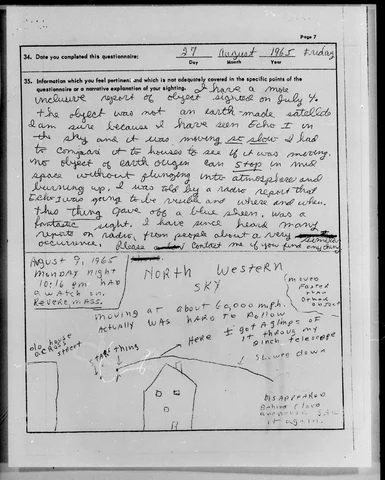 Page 7
34. Date you completed this questionnaire: 27 August 1965 Friday
Day Month Year
35. Information which you feel pertinent and which is not adequately covered in the specific points of the
questionnaire or a narrative explanation of your sighting. I have a more
inclusive report of object sighted on July 4.
The object was not an earth-made satellite
I am sure because I have seen Echo I in
the sky and it was moving so slow I had
to compare it to houses to see if it was moving.
No object of earth origin can stop in mid
space without plunging into atmosphere and
burning up. I was told by a radio report that
Echo I was going to be visible and where and when.
This thing gave off a blue sheen, was a
fantastic sight. I have since heard many
reports on radio, from people about a very similar
occurrence. Please contact me if you find anything
August 9, 1965
Monday night
10:16 pm had
a watch on.
Revere, Mass.
North Western
Sky
moved
faster
than
other
object
moving at about 60,000 mph.
Actually was hard to follow
Here I got a glimps of
it throug my
inch telescope
old house
across
street
START
thing
slowed down
DISAPPEARED
Behind cloud
it again.